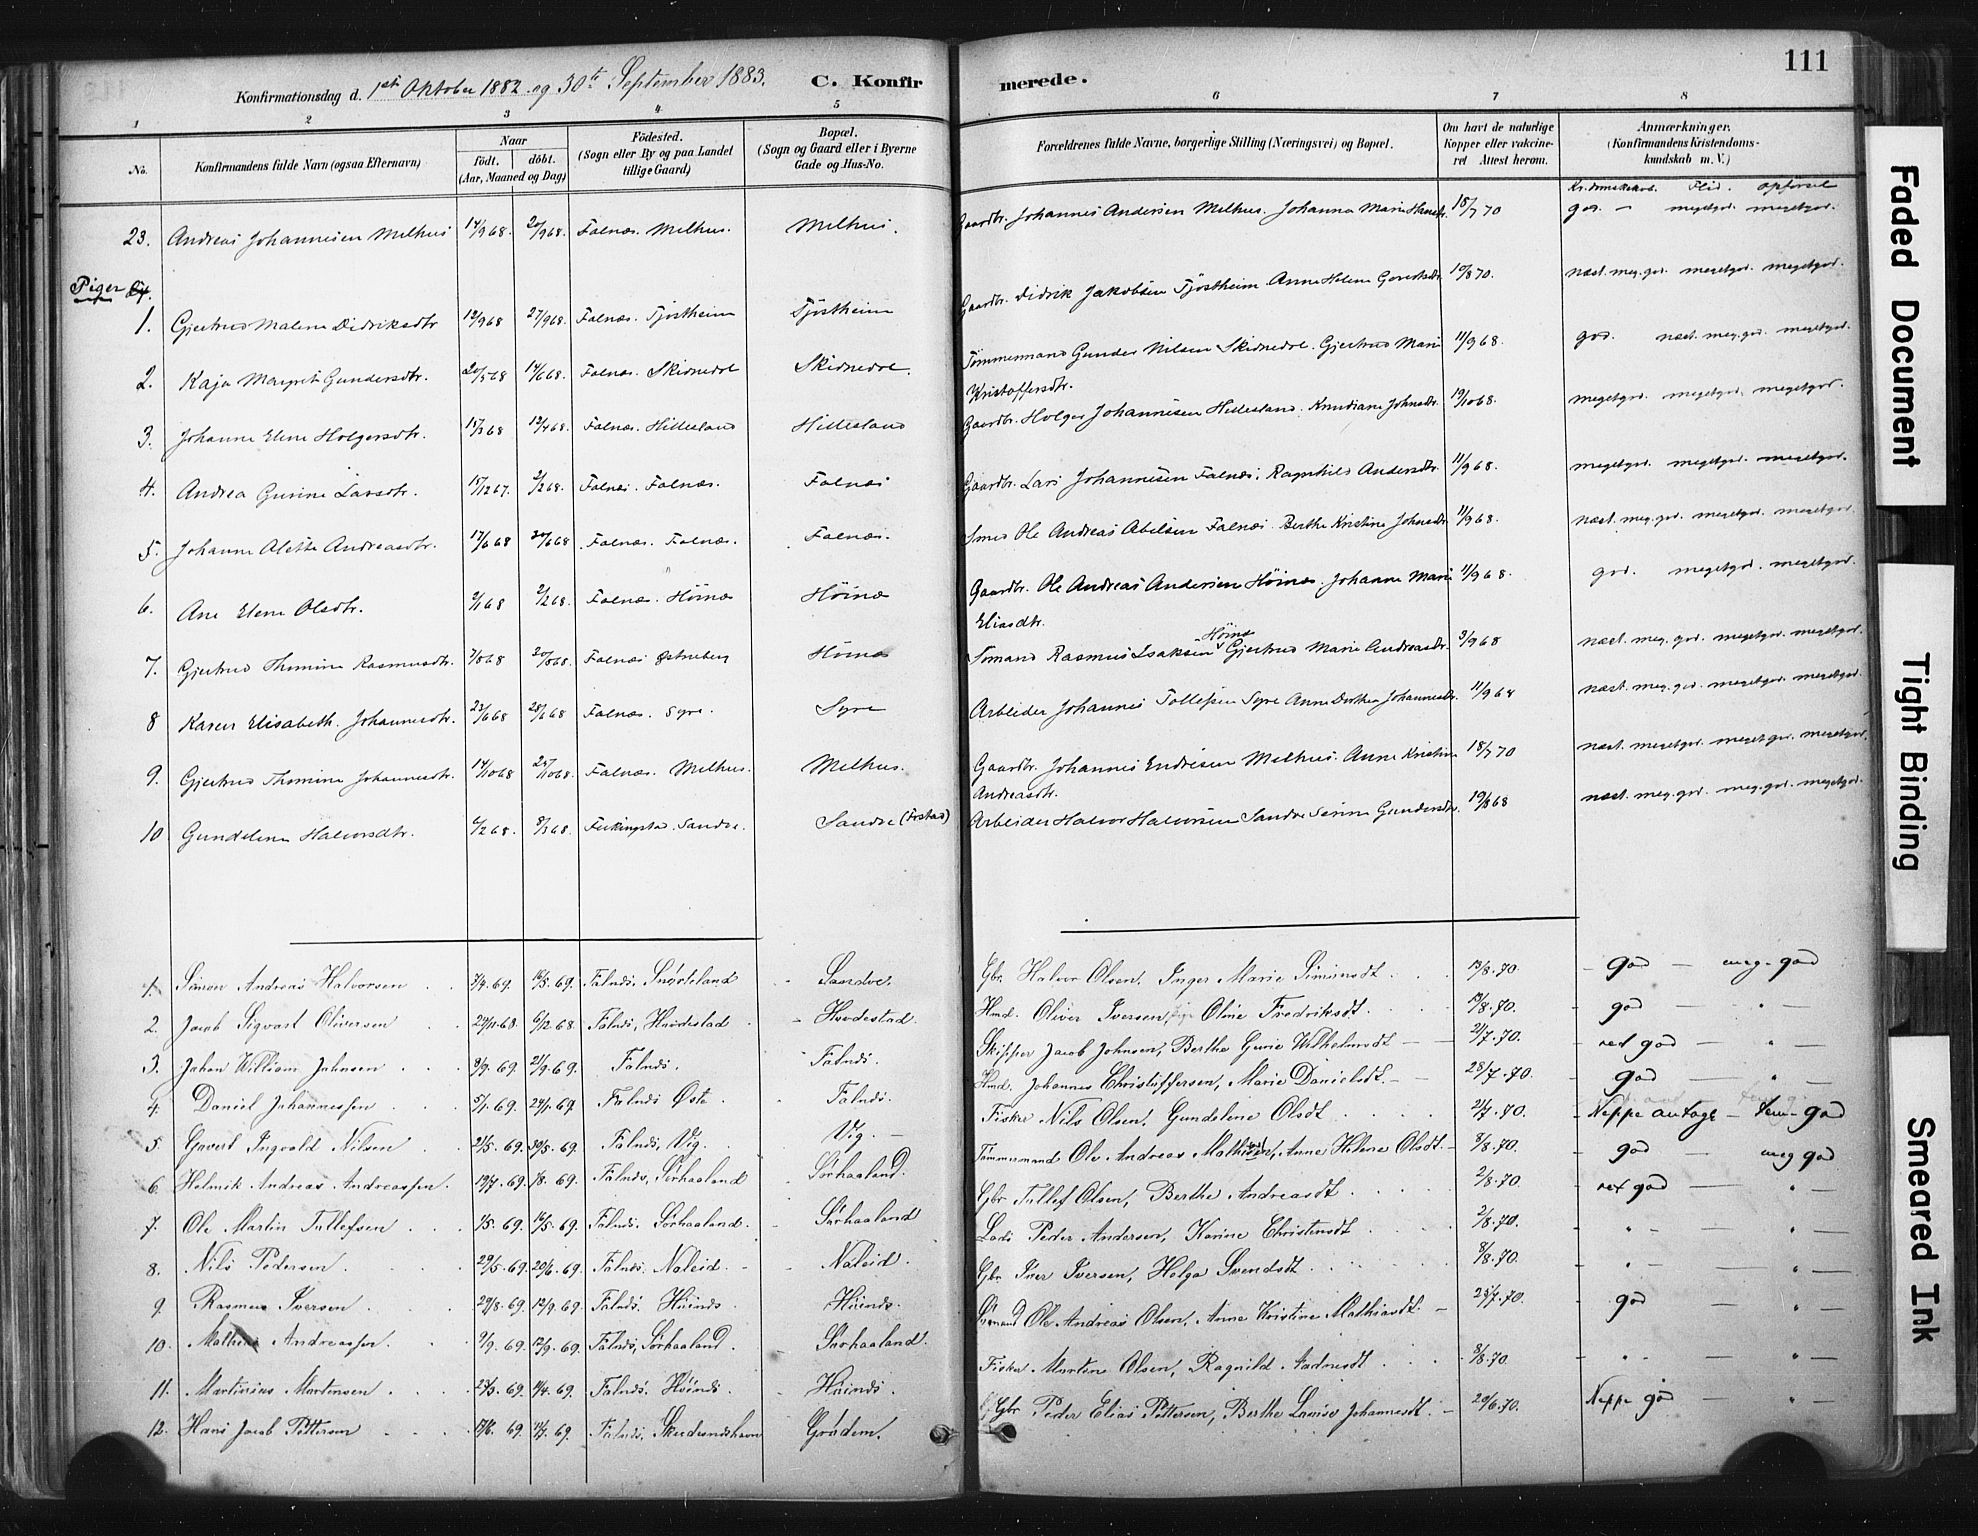 111
Konfirmationsdag d. 1ste Oktober 1882 og 30te September 1883. C. Konfirmerede.
1 2 3 4 5 6 7 8
No. Konfirmandens fulde Navn (ogsaa Efternavn) Naar født. døbt. (Aar, Maaned og Dag) Födested. (Sogn eller By og paa Landet tillige Gaard) Bopæl. (Sogn og Gaard eller i Byerne Gade og Hus-No. Forældrenes fulde Navne, borgerlige Stilling (Næringsvei) og Bopæl. Om havt de naturlige Kopper eller vakcineret Attest herom. Anmærkninger. (Konfirmandens Kristendomskundskab m. V.)
Flid. opførsel
23. Andreas Johannesen Melhus 14/9 68 20/9 68. Falnæs. Melhus. Melhus. Gaardbr. Johannes Andersen Melhus. Johanna Maria 18/7 70 god. — megetgod. megetgod.
Piger
1. Gjertrud Malene Didriksdtr 12/9 68 27/9 68. Falnæs. Tjøstheim Tjøstheim Gaardbr. Didrik Jakobsen Tjøstheim Anne Helene 19/8 70. næst. meg. god. megetgod. megetgod.
2. Kaja Margrete Gundersdtr. 20/5 68 14/6 68 Falnæs. Skidnedre Skidnedre. Tømmermand Gunder Nilsen Skidnedre. Gjertrud Marie Kristoffersdtr. 11/9 68. god. næst. meg. god. megetgod.
3. Johanne Elene Holgersdtr. 15/3 68 12/4 68. Falnæs. Hillesland Hillesland Gaardbr. Holger Johannesen Hillesland. Knudiane Johnsdtr. 19/10 68. megetgod. megetgod. megetgod.
4. Andrea Gurine Larsdtr. 15/12 67. 2/2 68. Falnæs. Falnæs. Falnæs Gaardbr. Lars Johannesen Falnæs. Ragnhild Andersdtr. 11/9 68. megetgod. megetgod. megetgod.
5. Johanne Alette Andreasdtr. 17/6 68 Falnæs. Falnæs. Falnæs. Smed Ole Andreas Abelsen Falnæs. Berthe Kristine Johnsdtr 11/9 68. næst. meg. god. megetgod. megetgod.
6. Ane Elene Olsdtr. 2/1 68 2/2 68. Falnæs. Høinæs Høinæs Gaardbr. Ole Andreas Andersen Høinæs. Johanne Marie Eliasdtr. 11/9 68. god. megetgod. megetgod.
7. Gjertrud Thomine Rasmusdtr. Falnæs Østreberg Høinæs Sømand Rasmus Isaksen Høinæs Gjertrud Marie Andreasdtr. 3/9 68 næst. meg. god. megetgod. megetgod.
8 Karen Elisabeth Johannesdtr. 23/6 68 28/6 68 Falnæs. Syre. Syre Arbeider Johannes Tollefsen Syre Anne Dorthea Johannesdtr. 11/9 68 næst. meg. god. megetgod. megetgod.
9. Gjertrud Thomine Johannesdtr. 14/10 68 25/10 68. Falnæs. Melhus. Melhus. Gaardbr. Johannes Endresen Melhus. Anne Kristine Andreasdtr. 18/7 70 næst. megetgod. megetgod. megetgod.
10 Gundeline Halvorsdtr. 6/2 68. 8/3 68. Ferkingstad. Sandve. Sandve Arbeider Halvor Halvorsen Sandve Gundersdtr. 19/8 68 næst. meg. god. meg. god. megetgod.
1. Simon Andreas Halvorsen 7/4. 69. 16/5. 69. Falnæs. Sandve. Gbr. Halvor Olsen, Inger Marie Simonsdt. 13/8. 70. god — meg. god
2. Jacob Sigvart Oliversen 6/12 68. Falnæs, Hovdestad Hovdestad. Hmd. Oliver Iversen, Oline Fredriksdt. 19/8. 70. god — " —
3. Johan William Johnsen 8/9. 69. 21/9. 69. Falnæs. Falnæs. Skipper Jacob Johnsen, Berthe Gurie Wilhelmsdt 21/7. 70. ret god — " —
4. Daniel Johannessen 5/1. 69. 24/1. 69. Falnæs Øste Falnæs. Hmd. Johannes Christoffersen, Marie Danielsdt. 28/7. 70. god — " —
5. Govert Ingvald Nilsen 21/5. 69. 30/5. 69. Falnæs, Vig. Vig. Fisker Nils Olsen, Gundeline Olsdt 21/7. 70. Neppe antage — god
6. Helmik Andreas Andreassen. 19/7. 69. 1/8. 69. Falnæs, Sørhaaland Sørhaaland. Tømmermand Ole Andreas Mathisen, Anne Helene Olsdt. 8/8. 70. god meg god
7. Ole Martin Tollefsen 1/5. 69. 16/5. 69. Falnæs. Sørhaaland. Sørhaaland Gbr Tollef Olsen, Berthe Andreasdt 2/8. 70. ret god — " —
8. Nils Pedersen 29/5. 69. 20/6. 69. Falnæs. Naleid. Naleid. Lods Peder Andersen, Karine Christensdt 2/8. 70. " — " —
9. Rasmus Iversen 29/8. 69. 12/9. 69. Falnæs. Høinæs. Høinæs. Gbr Iver Iversen, Helga Svendsdt 8/8. 70. " — " —
10. Mathias Andreassen 9/9. 69. 12/9. 69. Falnæs, Sørhaaland. Sørhaaland. Sømand Ole Andreas Olsen, Anne Kristine Mathiasdt. 23/7. 70. god — "
11. Martinius Martensen 23/3. 69. Falnæs. Høinæs. Høinæs. Fisker Martin Olsen, Ragnild 8/8. 70. " — " —
12. Hans Jacob Pettersen Falnæs, Skudesneshavn Grødem. Gbr Peder Elias Pettersen, Berthe Lovise Johannesdt. 29/6. 70. Neppe god — " —
Faded Document
Tight Binding
Smeared Ink